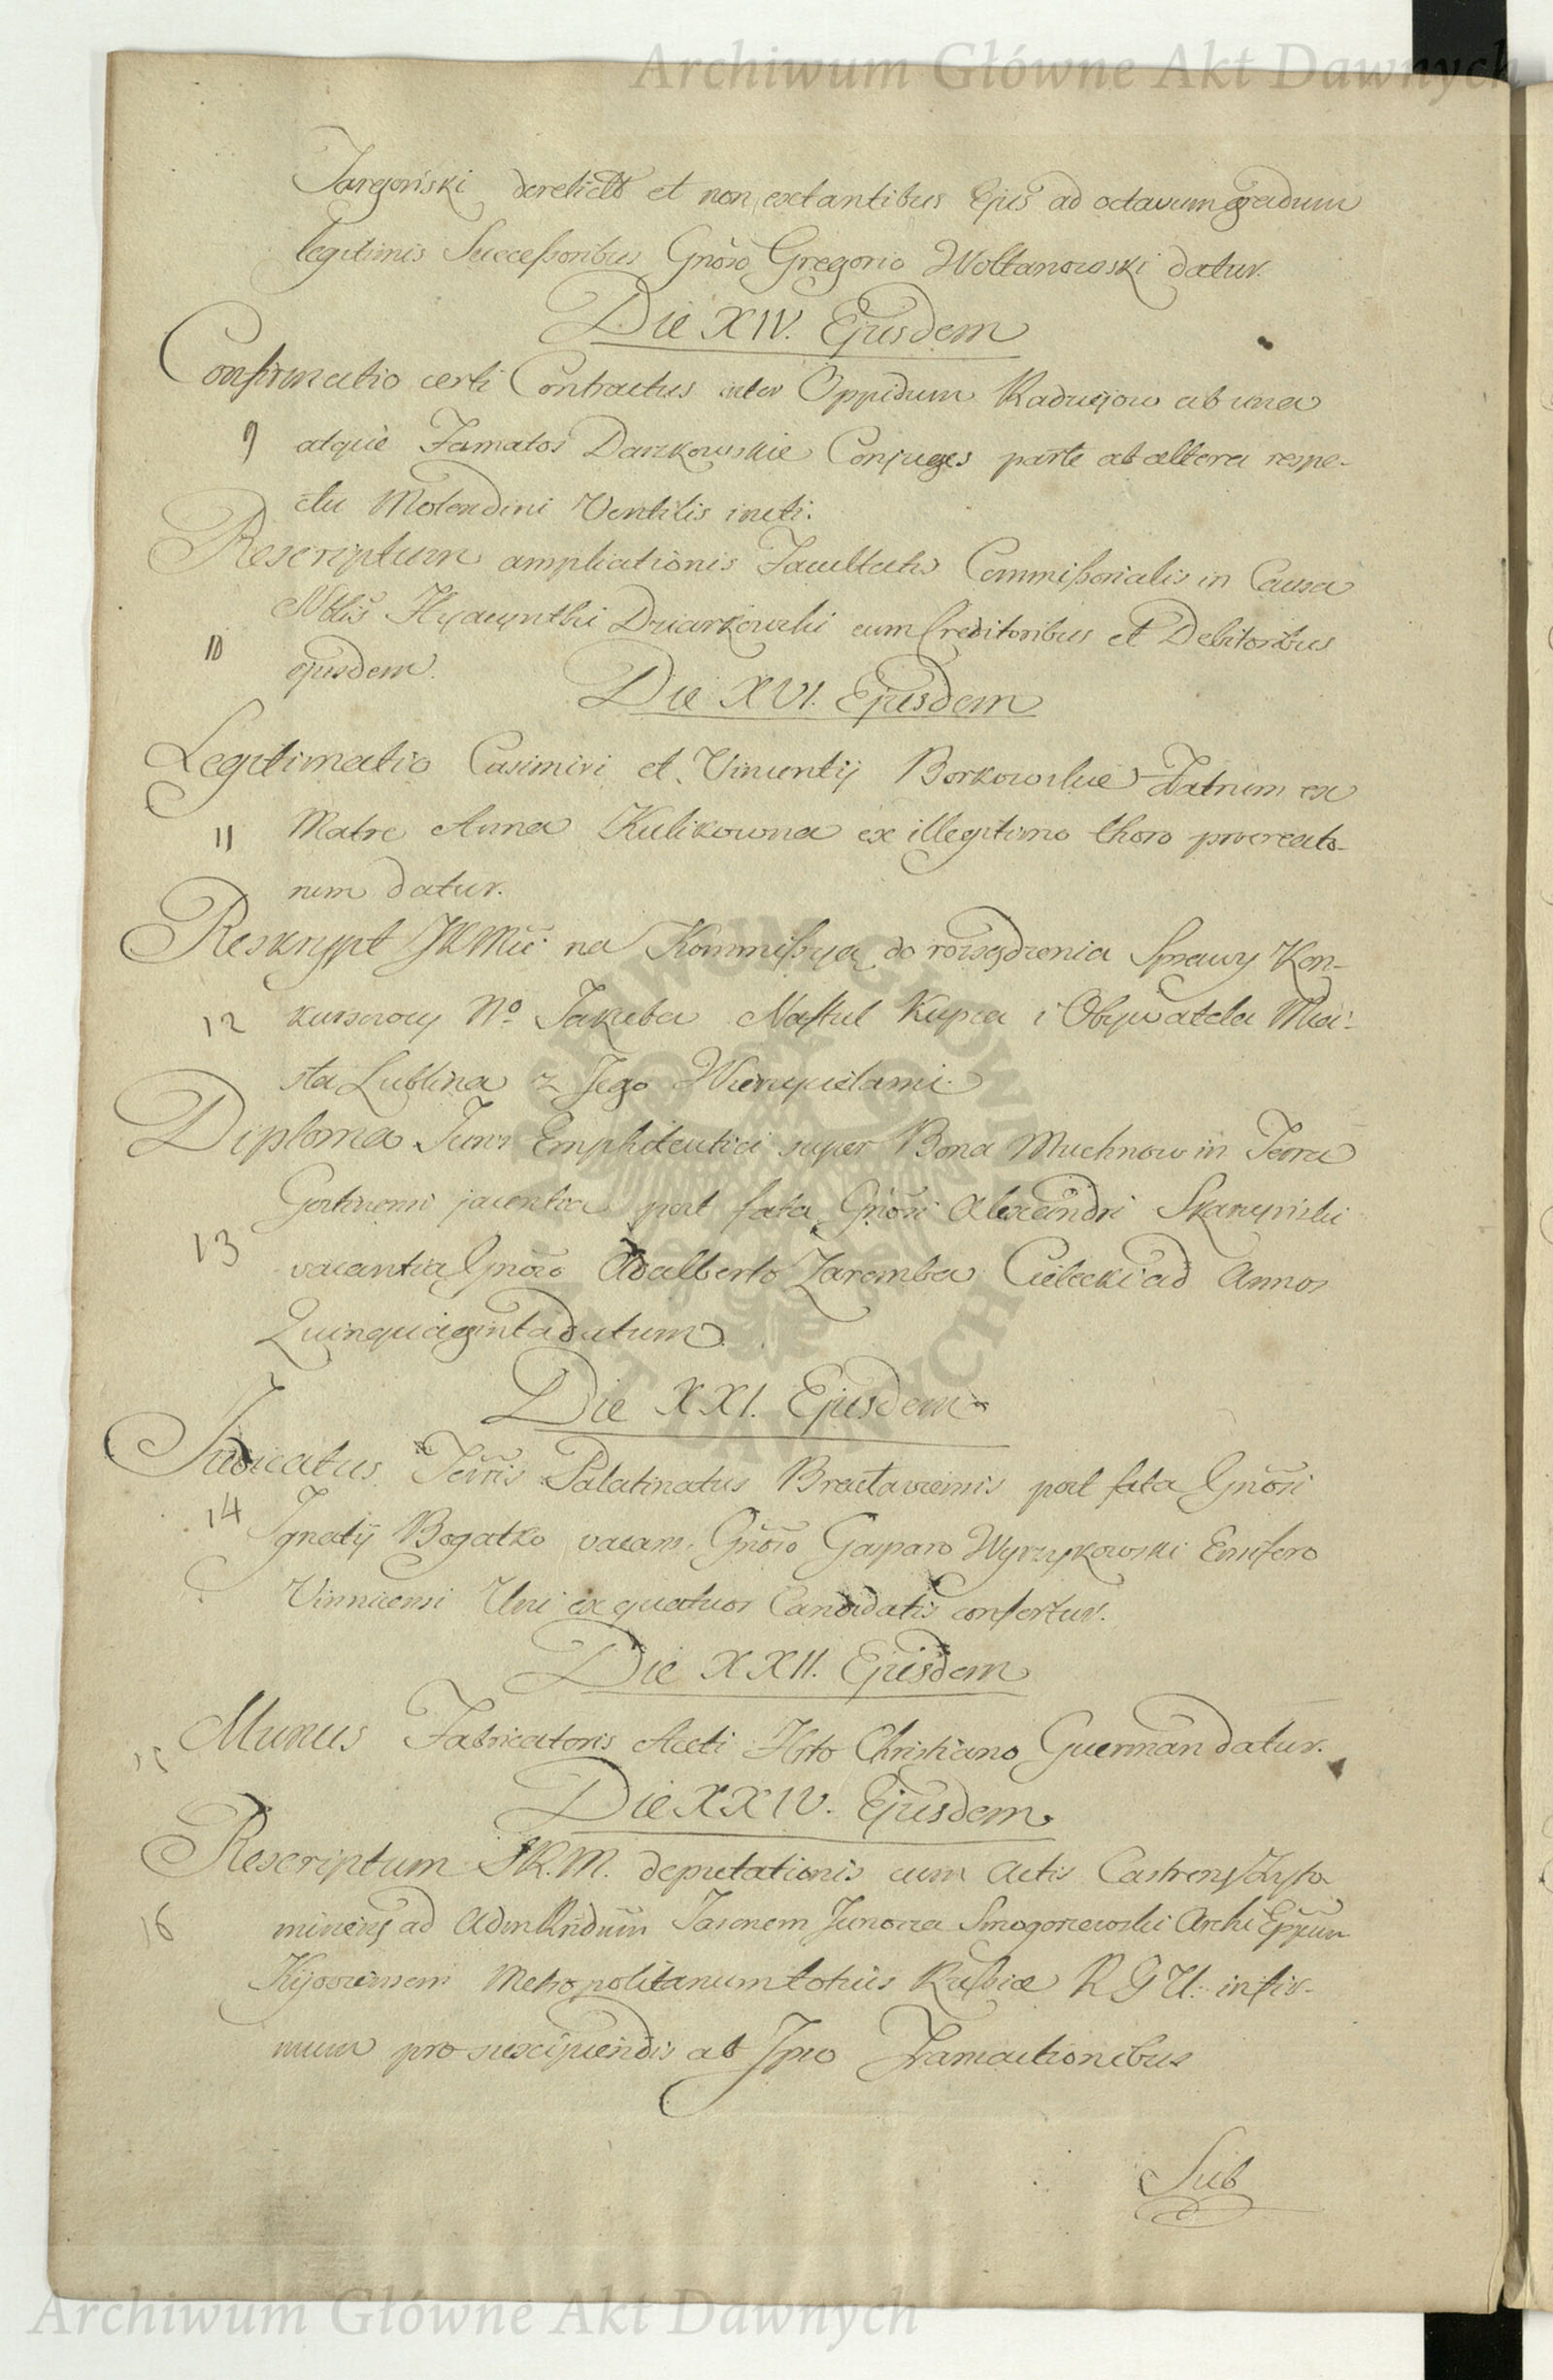 Archiwum Główne Akt Dawnych
Jaregoński derelicto et non extantibus Ejus ad octavum gradum
legitimis Successoribus Gnoso Gregorio Woltanowski datur.
Die XIV. Ejusdem
Confirmatio certi Contractus inter Oppidum Radziejow ab una
9 atque Famatos Darzkowskie Conjuges parte ab altera respe-
ctu Molendini Ventilis initi.
Rescriptum ampliationis Facultatis Commissorialis in Causa
Nblis Hyacynthi Dziarkowski cum Creditoribus et Debitoribus
10 ejusdem.
Die XVI. Ejusdem
Legitimatio Casimiri et Vincentij Borkowskie Fratrum ex
11 Matre Anna Kulikowna ex illegitimo thoro procreato-
rum datur.
Reskrypt JKMci na Kommissyą do rozsądzenia Sprawy Kon-
12 kursowey No Jakuba Nastul Kupca i Obywatela Mia-
sta Lublina z Jego Wierzycielami.
Diploma Juris Emphiteutici super Bona Muchnow in Terra
Gostinensi jacentia post fata Gnosi Alexandri Skarzynski
13 vacantia Gnoso Adalberto Zaremba Cielecki ad Annos
Quinquaginta datum.
Die XXI. Ejusdem
Judicatus Terris Palatinatus Braclaviensis post fata Gnosi
14 Ignatij Bogatko vacans Gnoso Gasparo Wyrzykowski Ensifero
Vinnicensi Uni ex quatuor Candidatis confertur.
Die XXII. Ejusdem
15 Munus Fabricatoris Aceti Hrto Christiano Guerman datur.
Die XXIV. Ejusdem
Rescriptum SK.M. deputationis cum Actis Castrens Zyto-
16 miriens ad AdmRndum Jasonem Junosza Smogorzewski Archi Eppum
Kijoviensem Metropolitanum totius Russiæ R G U. infir-
mum pro suscipiendis ab Ipso Transactionibus
Sub
Archiwum Główne Akt Dawnych